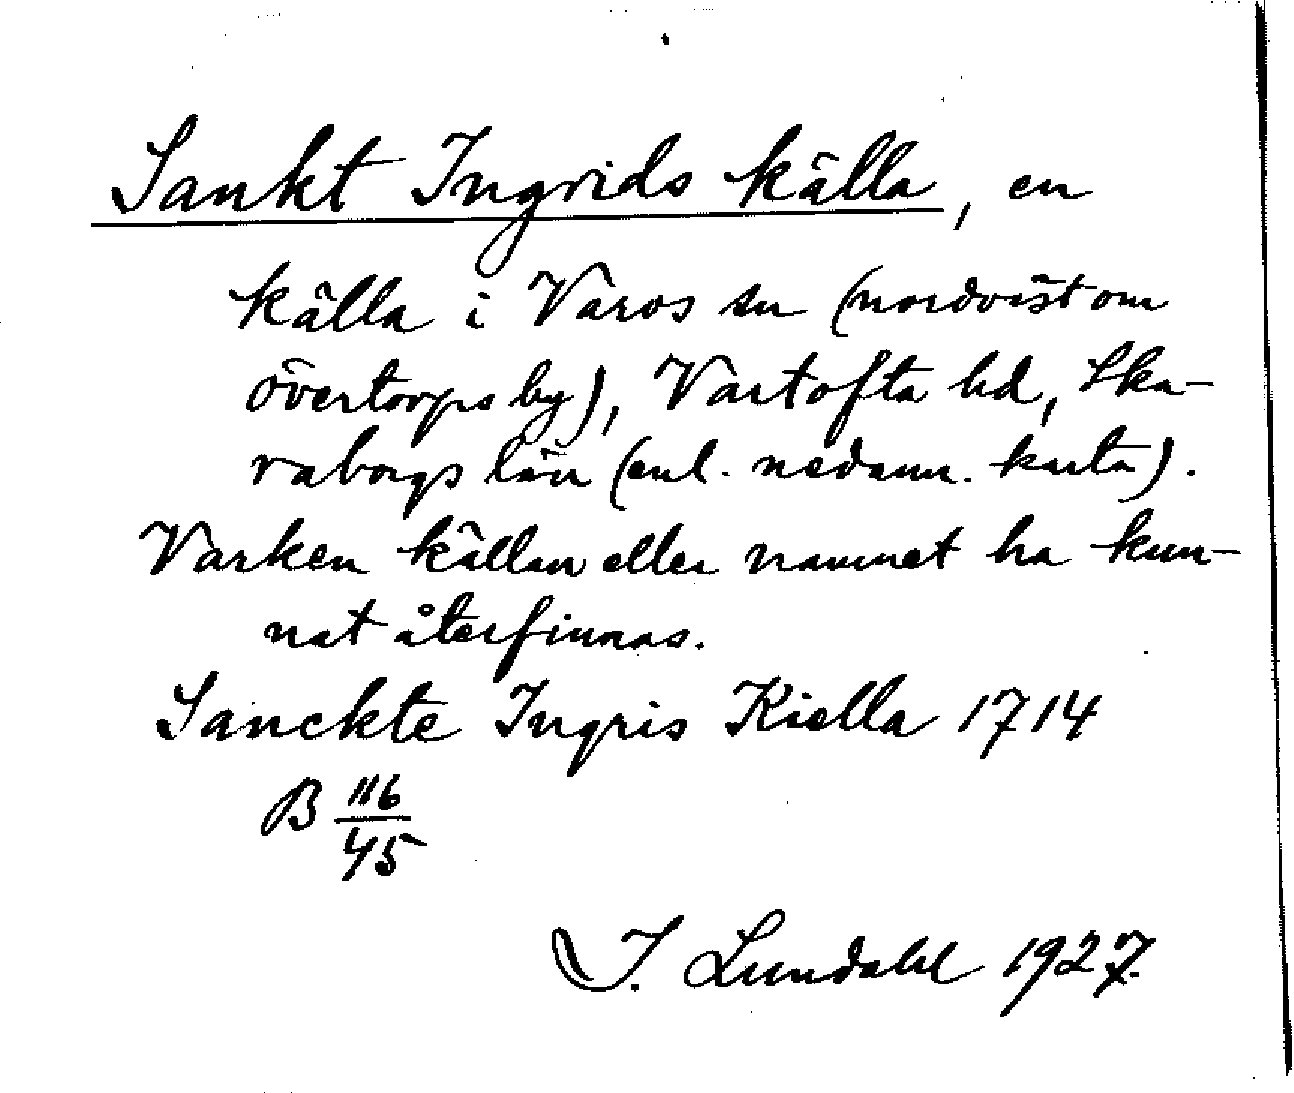 Sankt Ingrids källa, en
källa i Varos sn (nordväst om
Övertorps by), Vartofta hd, Ska-
raborgs län (enl. nedann. karta).
Varken källan eller namnet ha kun-
nat återfinnas.
Sanckte Ingris Kiella 1714
B 116/45
I. Lundahl 1927.